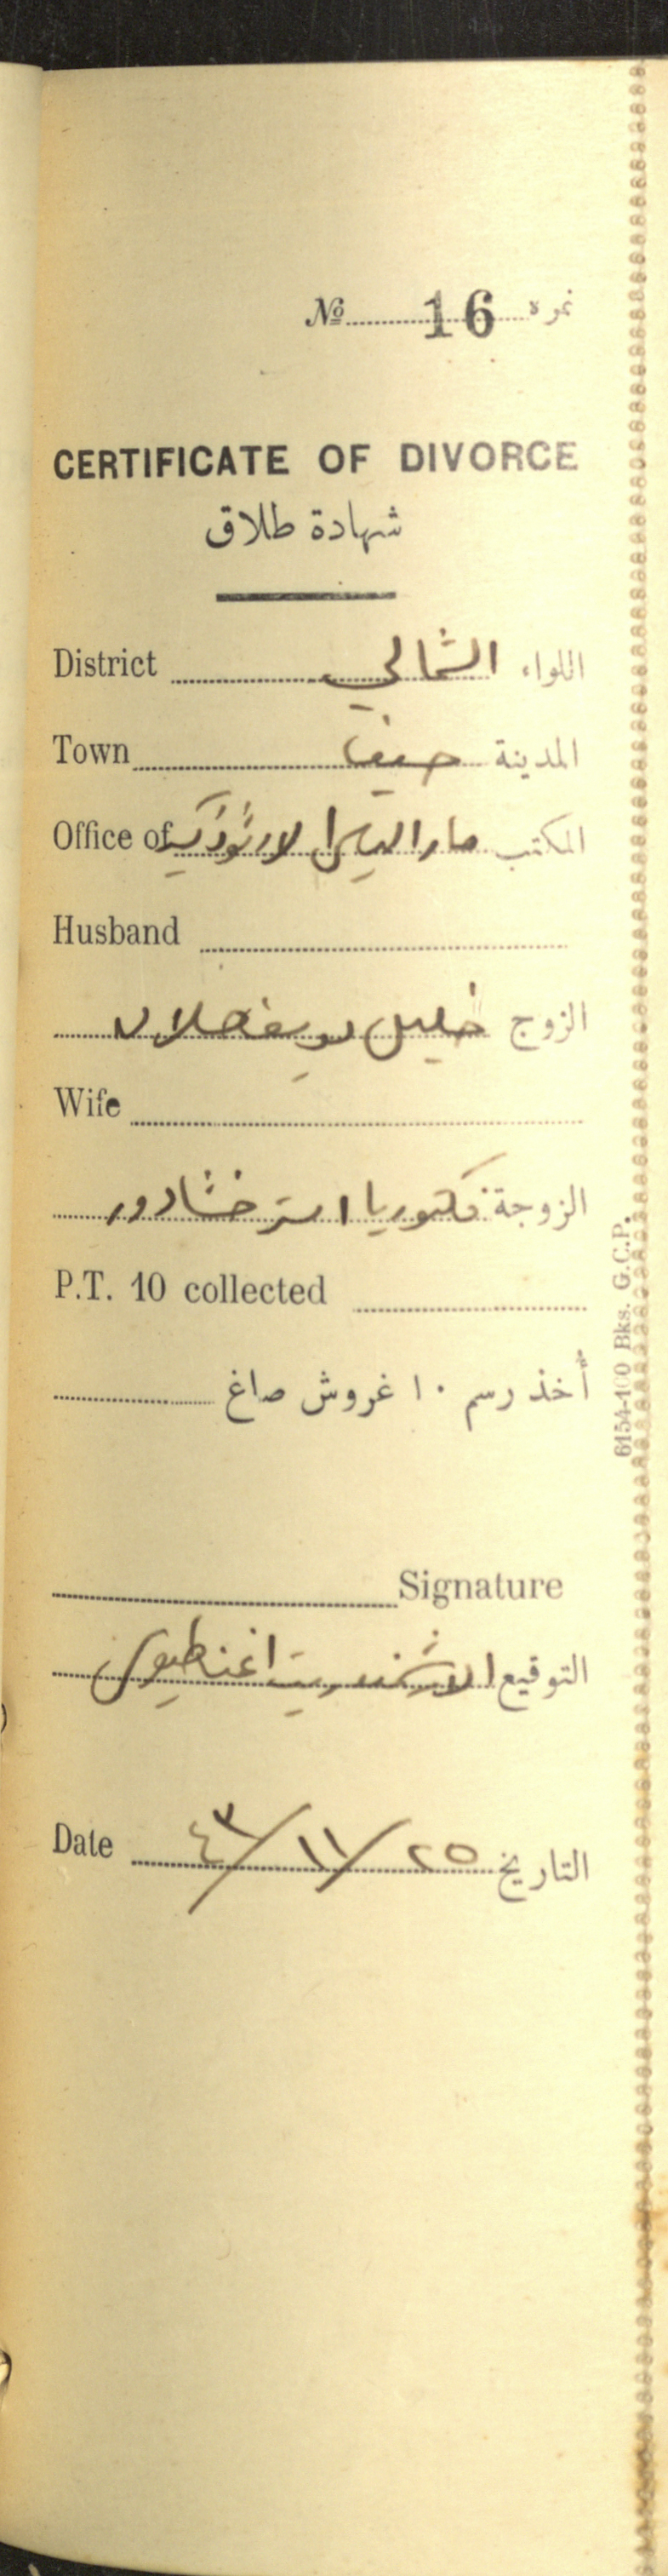 № 16 نمره
CERTIFICATE OF DIVORCE
شهادة طلاق
District الشمالي اللواء
Town حيفا المدينة
Office of مار الياس الارثوذكسية المكتب
Husband
الزوج خليل يوسف هلال
Wife
الزوجة فكتوريا استر خشادور
P.T. 10 collected
أخذ رسم ١٠ غروش صاغ
Signature
التوقيع الارشمندريت اغناطيوس
Date ٢٥/١١/٤٣ التاريخ
6154-100 Bks. G.C.P.